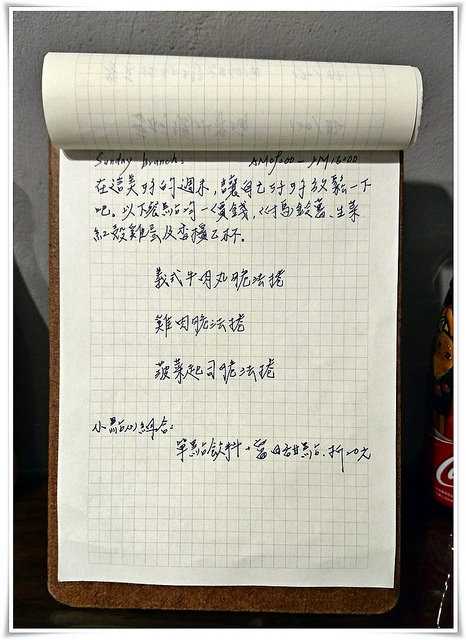 Sunday Brunch: AM09:00 - PM15:00
在這美好的週末，讓自己好好放鬆一下
吧，以下餐點均一價錢，附馬鈴薯、生菜
紅殼雞蛋及杏檬乙杯。
義式牛肉丸脆法捲
雞肉脆法捲
菠菜起司脆法捲
小點心組合：
單點飲料+當日甜點、折20元